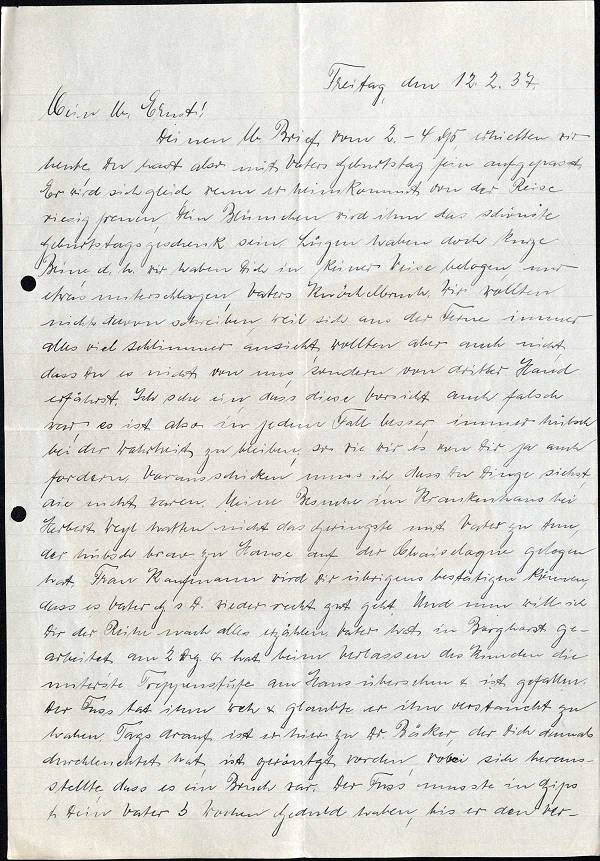 Freitag, den 12.2.37.
Mein lb. Ernst!
Deinen lb. Brief vom 2. - 4. ds erhielten wir
heute. Du hast also mit Vaters Geburtstag fein aufgepasst.
Er wird sich gleich wenn er heimkommt von der Reise
riesig freuen. Dein Blümchen wird ihm das schönste
Geburtstagsgeschenk sein. Lügen haben doch kurze
Beine d. h. wir haben Dich in keiner Weise belogen, nur
etwas unterschlagen, Vaters Knöchelbruch. Wir wollten
nichts davon schreiben, weil sich aus der Ferne immer
alles viel schlimmer ansieht, wollten aber auch nicht
dass Du es nicht von uns, sondern von dritter Hand
erfährst. Ich sehe ein, dass diese Vorsicht auch falsch
war, es ist also in jedem Fall besser, immer hübsch
bei der Wahrheit zu bleiben, so wie wir es von Dir ja auch
fordern. Vorausschicken muss ich dass Du Dinge siehst
die nicht waren. Meine Besuche im Krankenhaus bei
Herbert Weyl hatten nicht das Geringste mit Vater zu tun,
der hübsch brav zu Hause auf der Chaiselogne gelegen
hat. Frau Kaufmann wird Dir übrigens bestätigen können,
dass es Vater G. s. D. wieder recht gut geht. Und nun will ich
Dir der Reihe nach alles erzählen. Vater hat in Borghorst ge-
arbeitet am 2 Dez. & hat beim Verlassen des Kunden die
unterste Treppenstufe am Haus übersehen & ist gefallen.
Der Fuss tat ihm weh & glaubte er ihn verstaucht zu
haben. Tags drauf ist er hier zu Dr. Bäker, der Dich damals
durchleuchtet hat, ist geröntgt worden, wobei sich heraus-
stellte, dass es ein Bruch war. Der Fuss musste in Gips
& Dein Vater 3 Wochen Geduld haben, bis er den Ver-